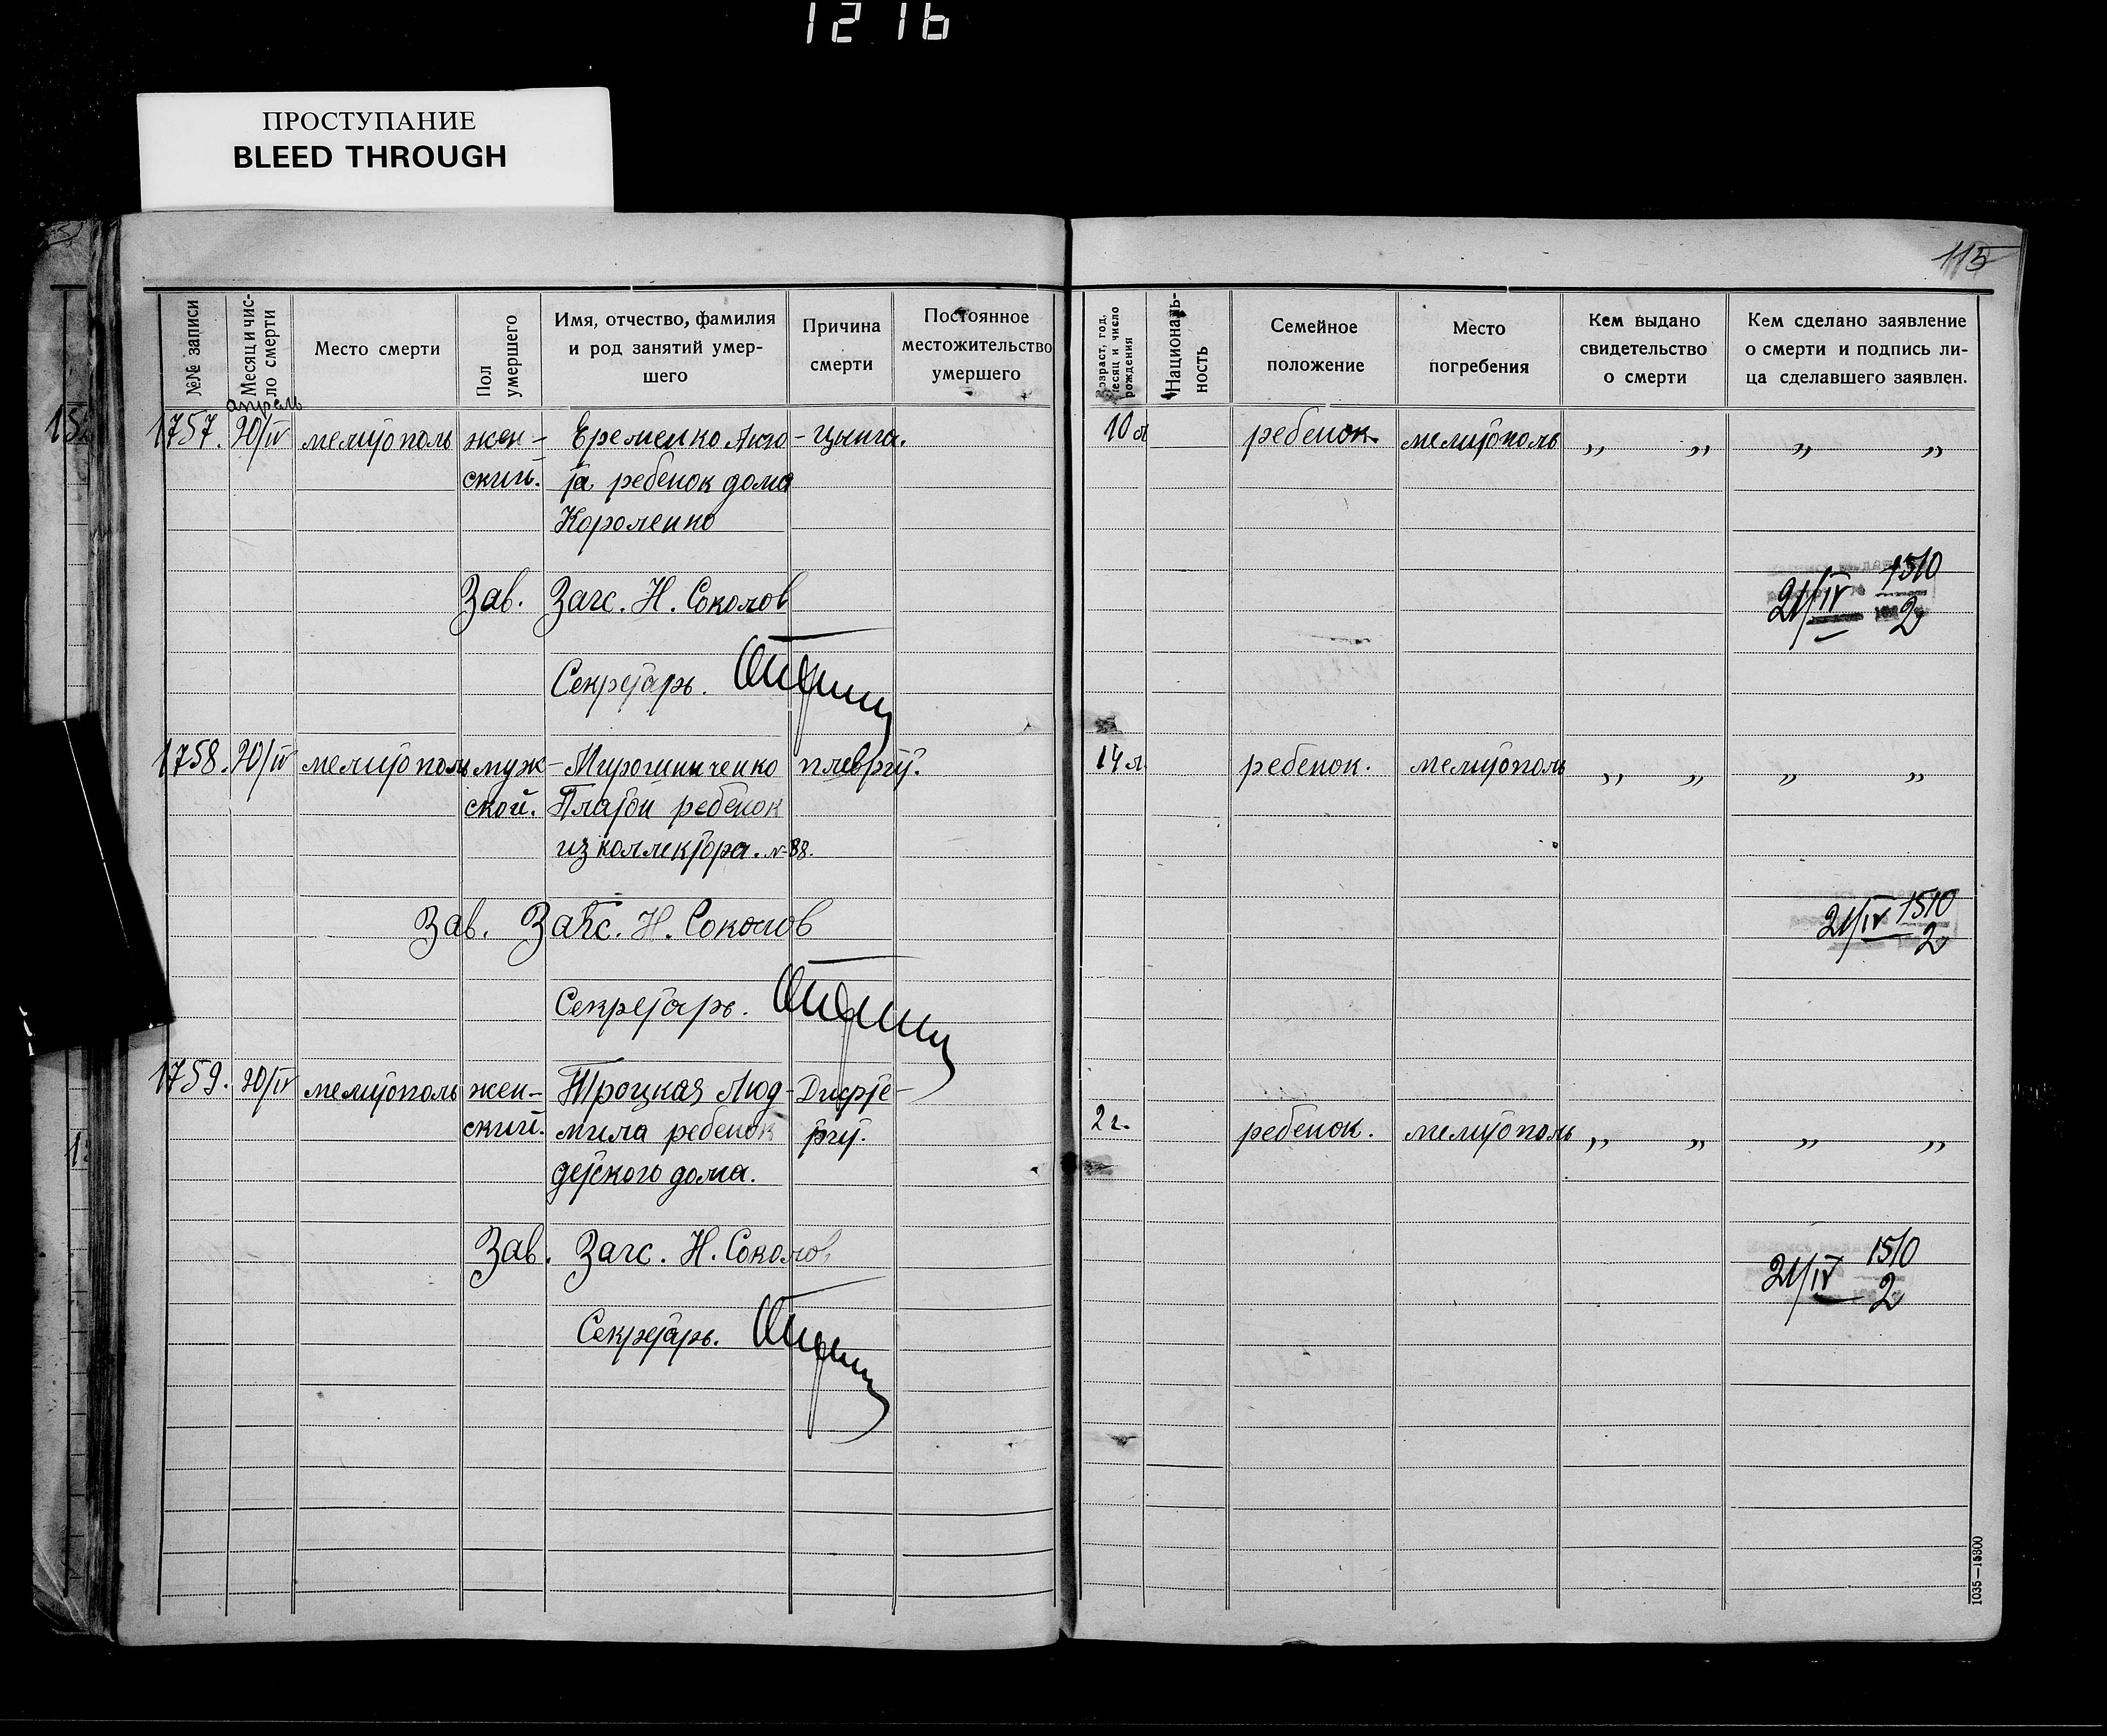 12 16
ПРОСТУПАНИЕ
BLEED THROUGH
115
№№ записи
Месяц и чис-
ло смерти
Место смерти
Пол
умершего
Имя, отчество, фамилия
и род занятий умер-
шего
Причина
смерти
Постоянное
местожительство
умершего
Возраст, год,
месяц и число
рождения
Националь-
ность
Семейное
положение
Место
погребения
Кем выдано
свидетельство
о смерти
Кем сделано заявление
о смерти и подпись ли-
ца сделавшего заявлен.
апрель
1757. 20/IV мелитополь жен- Еременко Аню- цынга. 10 л ребенок. мелитополь „ „ „ „
ский. та ребенок дома
Короленко
Зав. Загс. Н. Соколов
21/IV 1510
2
Секретарь.
1758. 20/IV мелитополь муж- Мирошниченко плеврит. 14 л. ребенок. мелитополь „ „ „ „
ской. Платон ребенок
из коллектора. №88.
Зав. Загс. Н. Соколов
21/IV 1510
2
Секретарь.
1759. 20/IV мелитополь жен- Троцкая Люд- Дифте-
ский. мила ребенок рит. 2 г. ребенок. мелитополь „ „ „ „
детского дома.
Зав. Загс. Н. Соколов
21/IV 1510
2
Секретарь.
1035—15300